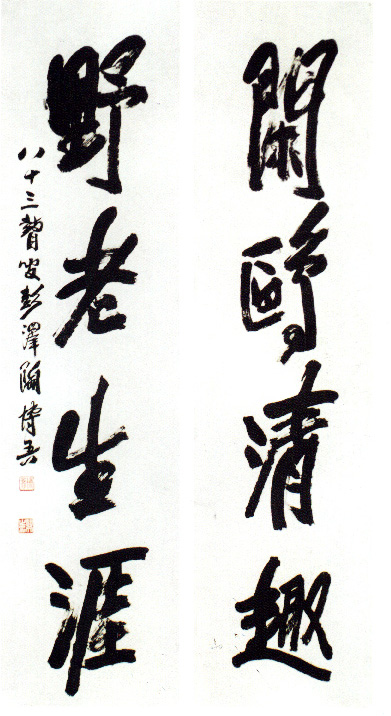 閑鷗清趣
野老生涯
八十三瞽叟彭澤陶博吾